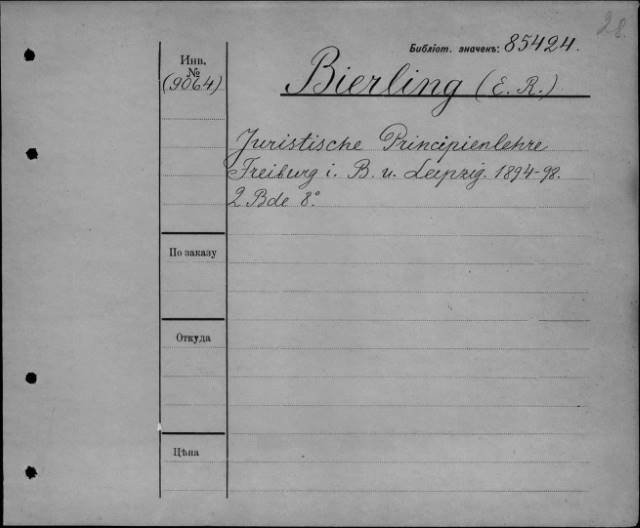 28.
Библіот. значекъ: 85424.
Инв. №
(9064)
Bierling (E. R.)
Juristische Principienlehre
Freiburg i. B. u. Leipzig. 1894-98.
2 Bde 8°.
По заказу
Откуда
Цѣна